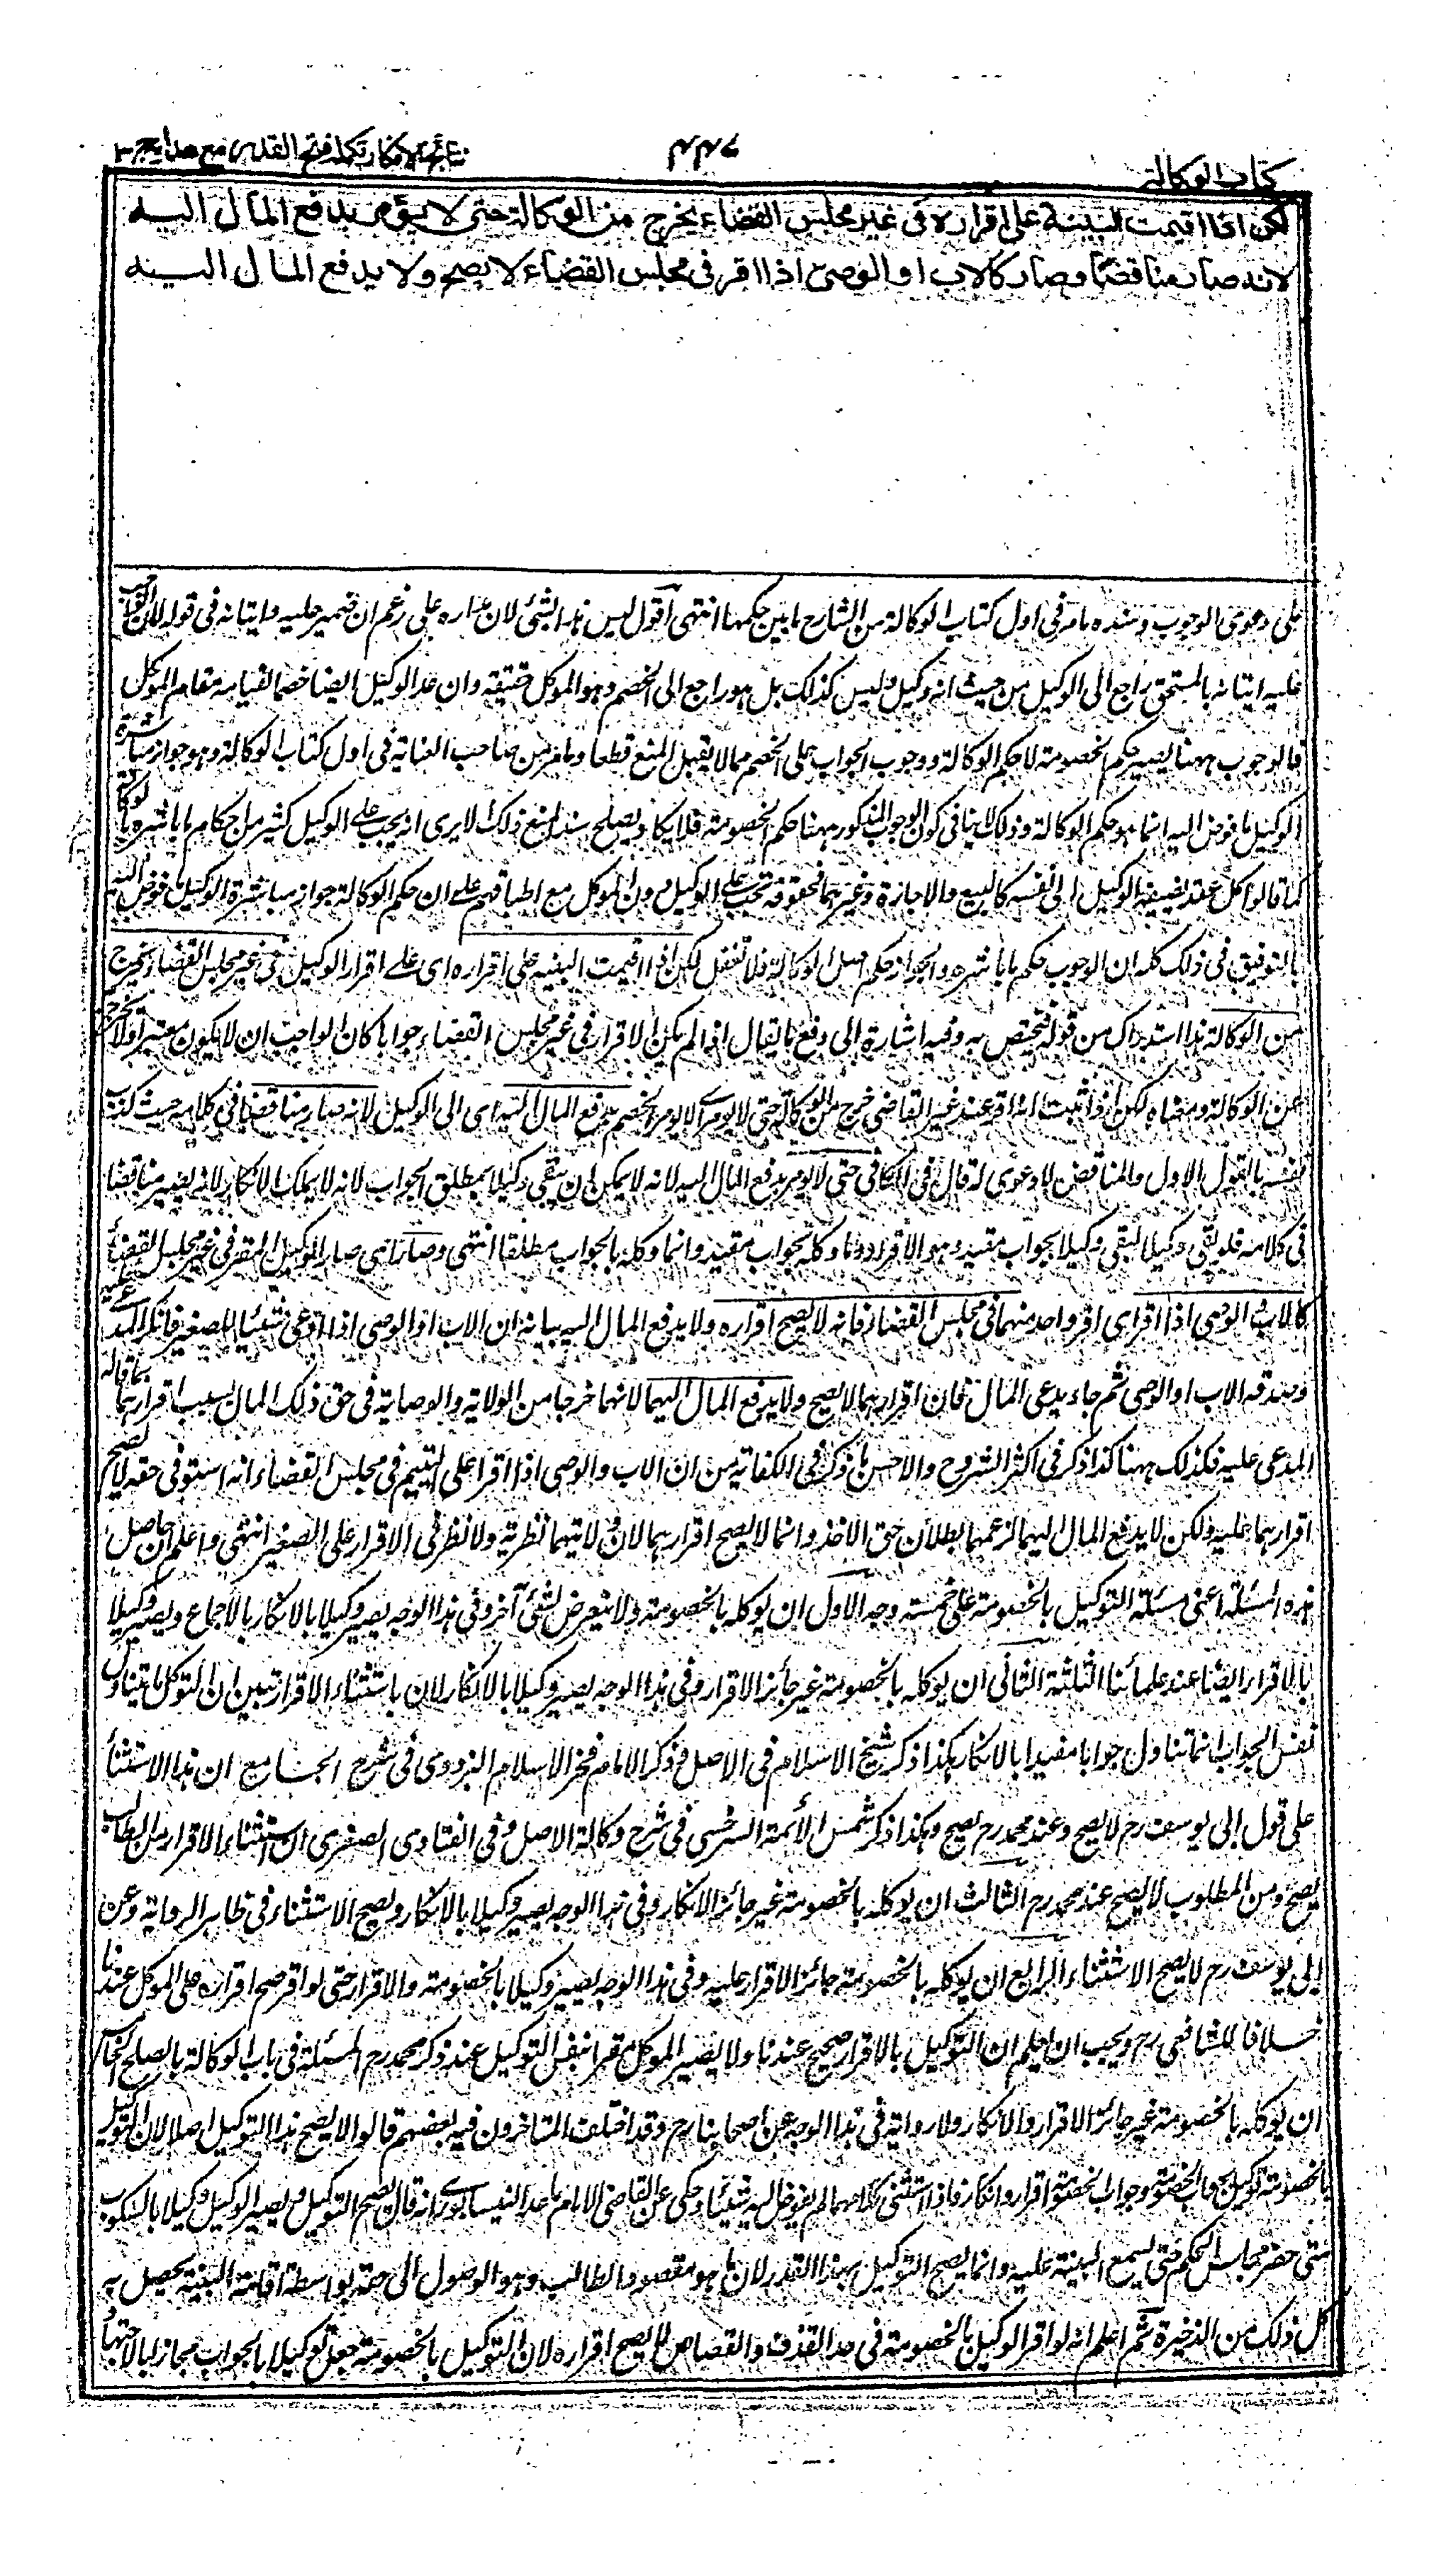 كتاب الوكالة
٤٤٧
نتائج الافكار تكملة فتح القدير مع هداية ج ٣
لكن اذا اقيمت البينة على اقراره في غير مجلس القضاء يخرج من الوكالة حتى لا يؤمر بدفع المال اليه
لانه صار مناقضا وصار كالاب او الوصي اذا اقر في مجلس القضاء لا يصح ولا يدفع المال اليه
على دعوى الوجوب وسنده ما مر في اول كتاب الوكالة من الشارح ما بين حكمها انتهى اقول ليس هذا بشئ لان مداره على زعم ان ضمير عليه واتيانه في قوله لان الواجب
عليه اتيانه بالمستحق راجع الى الوكيل من حيث انه وكيل وليس كذلك بل هو راجع الى الخصم وهو الموكل حقيقة وان عد الوكيل ايضا خصما لقيامه مقام الموكل
فالوجوب ههنا يصير حكم الخصومة لا حكم الوكالة ووجوب الجواب على الخصم مما لا يقبل المنع قطعا وما مر من صاحب العناية في اول كتاب الوكالة وهو جواز مباشرة
الوكيل ما فوض اليه انما هو حكم الوكالة وذلك لا ينافي كون الوجوب المذكور ههنا حكم الخصومة فلا يكاد يصلح سندا لمنع ذلك الا يرى انه يجب على الوكيل كثير من احكام ما باشره بالوكالة
كما قالوا كل عقد يضيفه الوكيل الى نفسه كالبيع والاجارة وغيرهما فحقوقه تجب على الوكيل دون الموكل مع اطباقهم على ان حكم الوكالة جواز مباشرة الوكيل ما فوض اليه
بالتوفيق في ذلك كله ان الوجوب حكم ما باشره والجواز حكم اصل الوكالة فلا تغفل لكن اذا اقيمت البينة على اقراره اى على اقرار الوكيل في غير مجلس القضاء يخرج
من الوكالة هذا استدراك من قوله فيختص به وفيه اشارة الى دفع ما يقال اذا لم يكن الاقرار في غير مجلس القضاء جوابا كان الواجب ان لا يكون معتبرا ولا يخرج
عن الوكالة ومعناه لكن اذا ثبت انه اقر عند غير القاضي خرج من الوكالة حتى لا يؤمر اى لا يؤمر الخصم بدفع المال اليه اى الى الوكيل لانه صار مناقضا في كلامه حيث كذب
نفسه بالقول الاول والمناقض لا دعوى له قال في الكافي حتى لا يؤمر بدفع المال اليه لانه لا يمكن ان يبقى وكيلا بمطلق الجواب لانه لا يملك الانكار لانه يصير مناقضا
في كلامه فلو بقي وكيلا لبقي وكيلا بجواب مقيد وهو الاقرار وما وكله بجواب مقيد وانما وكله بالجواب مطلقا انتهى وصار اى صار الوكيل المقر في غير مجلس القضاء
كالاب او الوصي اذا اقر اى اقر واحد منهما في مجلس القضاء فانه لا يصح اقراره ولا يدفع المال اليه بيانه ان الاب او الوصي اذا ادعى شيئا للصغير فانكر المدعى عليه
وصدقه الاب او الوصي ثم جاء يدعى المال فان اقرارهما لا يصح ولا يدفع المال اليهما لانهما خرجا من الولاية والوصاية في حق ذلك المال بسبب اقرارهما بما قاله
المدعى عليه فكذلك ههنا كذا ذكر في اكثر الشروح والاحسن ما ذكر في الكفاية من ان الاب والوصي اذا اقرا على اليتيم في مجلس القضاء انه استوفى حقه لا يصح
اقرارهما عليه ولكن لا يدفع المال اليهما لزعمهما بطلان حق الاخذ وانما لا يصح اقرارهما لان ولايتهما نظرية ولا نظر في الاقرار على الصغير انتهى واعلم ان حاصل
هذه المسئلة اعنى مسئلة التوكيل بالخصومة على خمسة وجه الاول ان يوكله بالخصومة ولا يتعرض لشئ آخر وفي هذا الوجه يصير وكيلا بالانكار بالاجماع ويصير وكيلا
بالاقرار ايضا عند علمائنا الثلثة الثاني ان يوكله بالخصومة غير جائز الاقرار وفي هذا الوجه يصير وكيلا بالانكار لان باستثناء الاقرار تبين ان التوكيل ما يتناول
نفس الجواب انما تناول جوابا مقيدا بالانكار هكذا ذكر شيخ الاسلام في الاصل وذكر الامام فخر الاسلام البزدوى في شرح الجامع ان هذا الاستثناء
على قول ابى يوسف رح لا يصح وعند محمد رح يصح وهكذا ذكر شمس الائمة السرخسي في شرح وكالة الاصل وفي الفتاوى الصغرى ان استثناء الاقرار من الطالب
يصح ومن المطلوب لا يصح عند محمد رح الثالث ان يوكله بالخصومة غير جائز الانكار وفي هذا الوجه يصير وكيلا بالانكار ويصح الاستثناء في ظاهر الرواية وعن
ابى يوسف رح لا يصح الاستثناء الرابع ان يوكله بالخصومة جائز الاقرار عليه وفي هذا الوجه يصير وكيلا بالخصومة والاقرار حتى لو اقر صح اقراره على الموكل عندنا
خلافا للشافعي رح ويجب ان يعلم ان التوكيل بالاقرار صحيح عندنا ولا يصير الموكل مقرا بنفس التوكيل عند ذكر محمد رح المسئلة في باب الوكالة بالصلح الخامس
ان يوكله بالخصومة غير جائز الاقرار والانكار ولا رواية في هذا الوجه عن اصحابنا رح وقد اختلف المتاخرون فيه بعضهم قالوا لا يصح هذا التوكيل اصلا لان التوكيل
بالخصومة توكيل بجواب الخصومة وجواب الخصومة اقرار وانكار فاذا استثنى كلاهما لم يفوض اليه شيئا وحكى عن القاضي الامام صاعد النيسابورى انه قال يصح التوكيل ويصير الوكيل وكيلا بالسكوت
متى حضر مجلس الحكم حتى يسمع البينة عليه وانما يصح التوكيل بهذا القدر لان ما هو مقصود الطالب وهو الوصول الى حقه بواسطة اقامة البينة يحصل به
كل ذلك من الذخيرة ثم اعلم انه لو اقر الوكيل بالخصومة في حد القذف والقصاص لا يصح اقراره لان التوكيل بالخصومة جعل توكيلا بالجواب مجازا بالاجتهاد